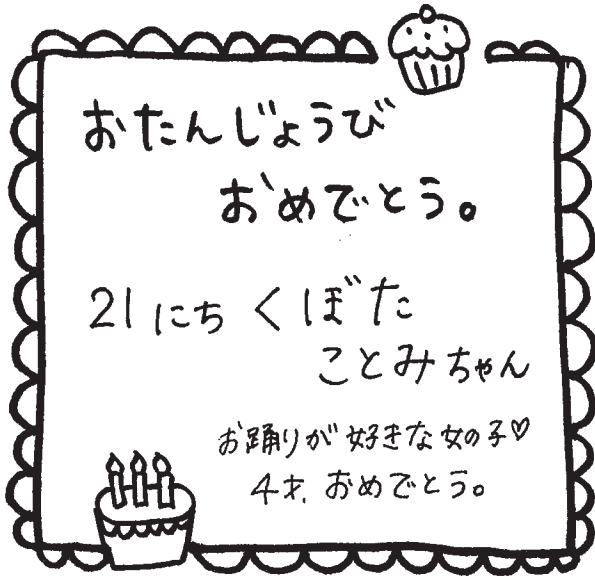 おたんじょうび
おめでとう。
21にち くぼた
ことみちゃん
お踊りが好きな女の子♡
4才、おめでとう。